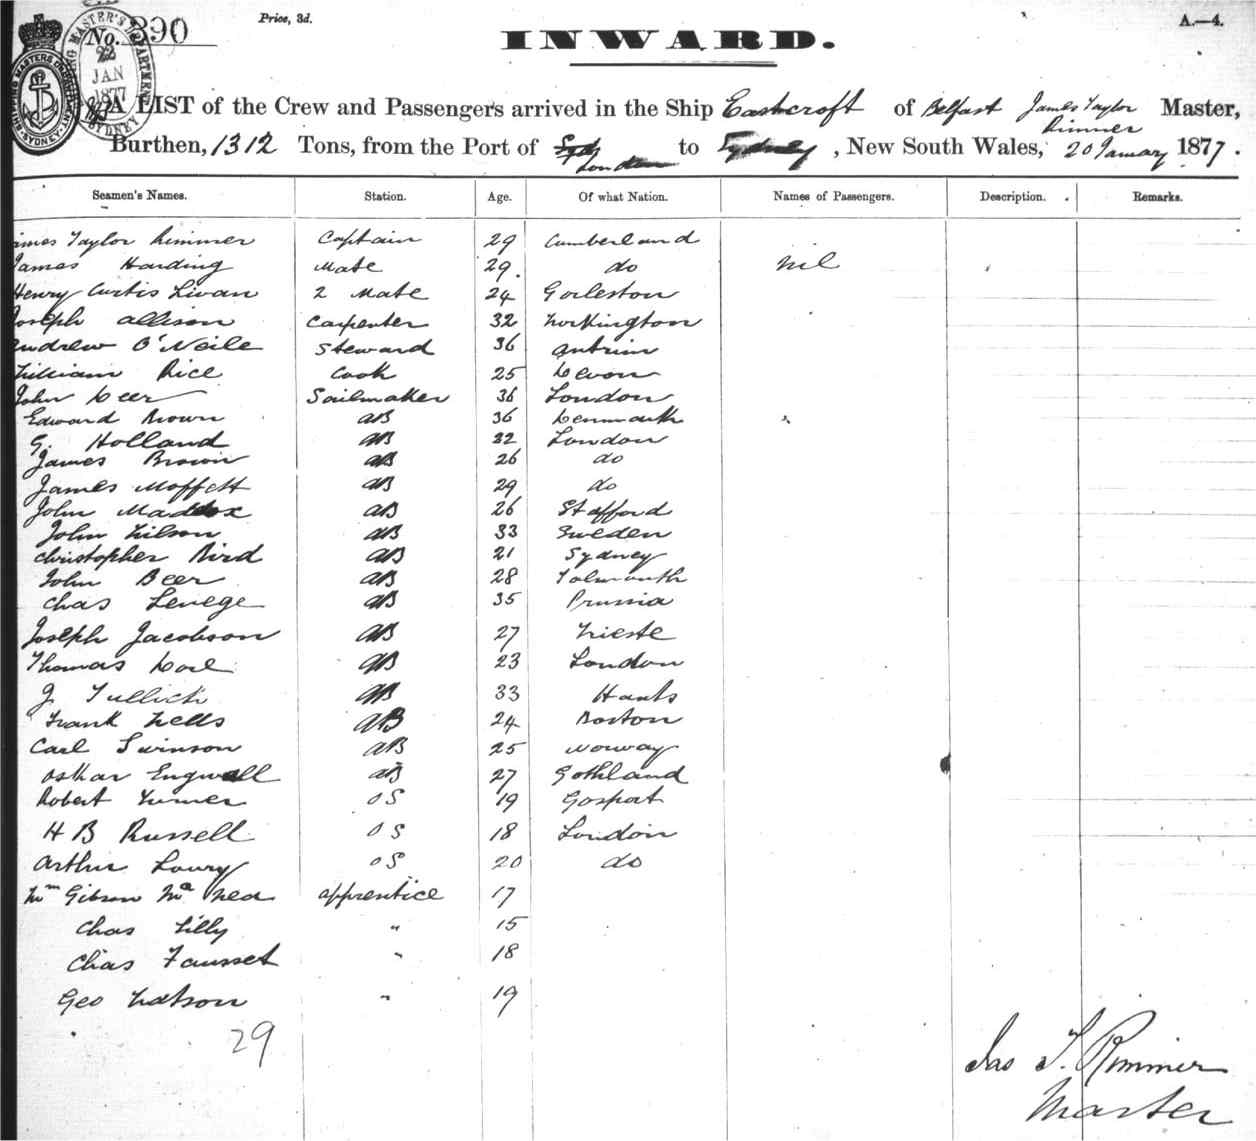 No. 390 Price, 3d. A.—4.
22
JAN
1877
SYDNEY
INWARD.
A LIST of the Crew and Passengers arrived in the Ship Eastcroft of Belfast James Taylor Rimmer Master,
Burthen, 1312 Tons, from the Port of London to Sydney, New South Wales, 20 January 1877.
Seamen's Names. Station. Age. Of what Nation. Names of Passengers. Description. Remarks.
James Taylor Rimmer Captain 29 Cumberland
James Harding Mate 29. do nil
Henry Curtis 2 Mate 24 Gorleston
Joseph Allison Carpenter 32 Workington
Andrew O'Neile Steward 36 Antrim
William Rice Cook 25 Devon
John Deer Sailmaker 36 London
Edward Brown AB 36 Denmark
G. Holland AB 22 London
James Brown AB 26 do
James Moffett AB 29 do
John Maddox AB 26 Stafford
John Wilson AB 33 Sweden
Christopher Bird AB 21 Sydney
John Beer AB 28 Falmouth
Chas AB 35 Prussia
Joseph Jacobson AB 27 Trieste
Thomas AB 23 London
J. Tullick AB 33 Hants
Frank Wells AB 24 Boston
Carl Swinson AB 25 Norway
Oskar Engwall AB 27 Gothland
Robert Turner OS 19 Gosport
H B Russell OS 18 London
Arthur Lowry OS 20 do
Wm Gibson apprentice 17
Chas Lilly " 15
Chas Fausset " 18
Geo Watson " 19
29
Jas T. Rimmer
Master